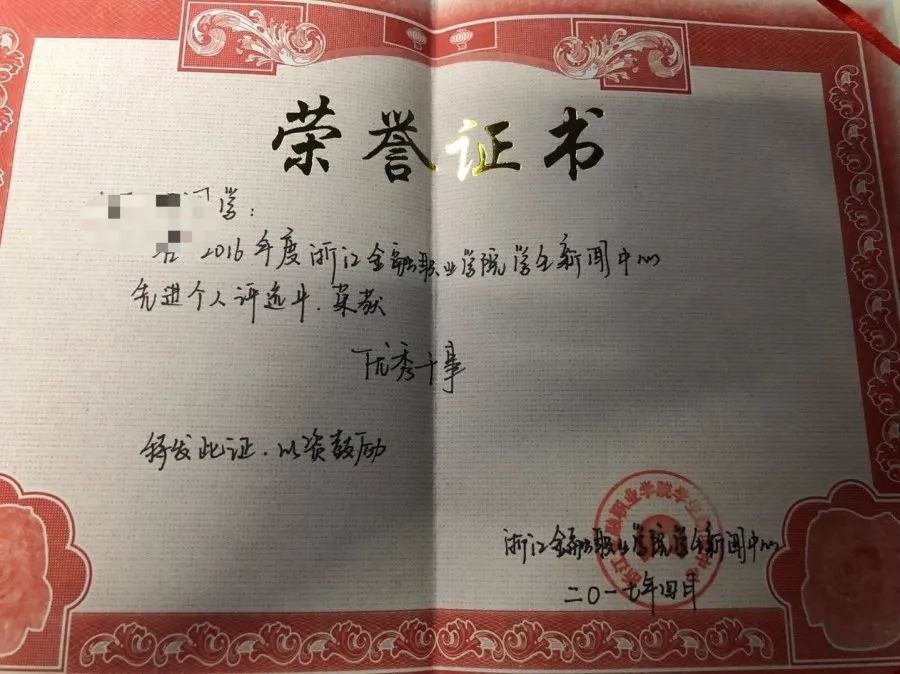 荣誉证书
同学：
在2016年度浙江金融职业学院学生新闻中心
先进个人评选中，荣获
优秀干事
特发此证，以资鼓励
浙江金融职业学院学生新闻中心
二〇一七年四月